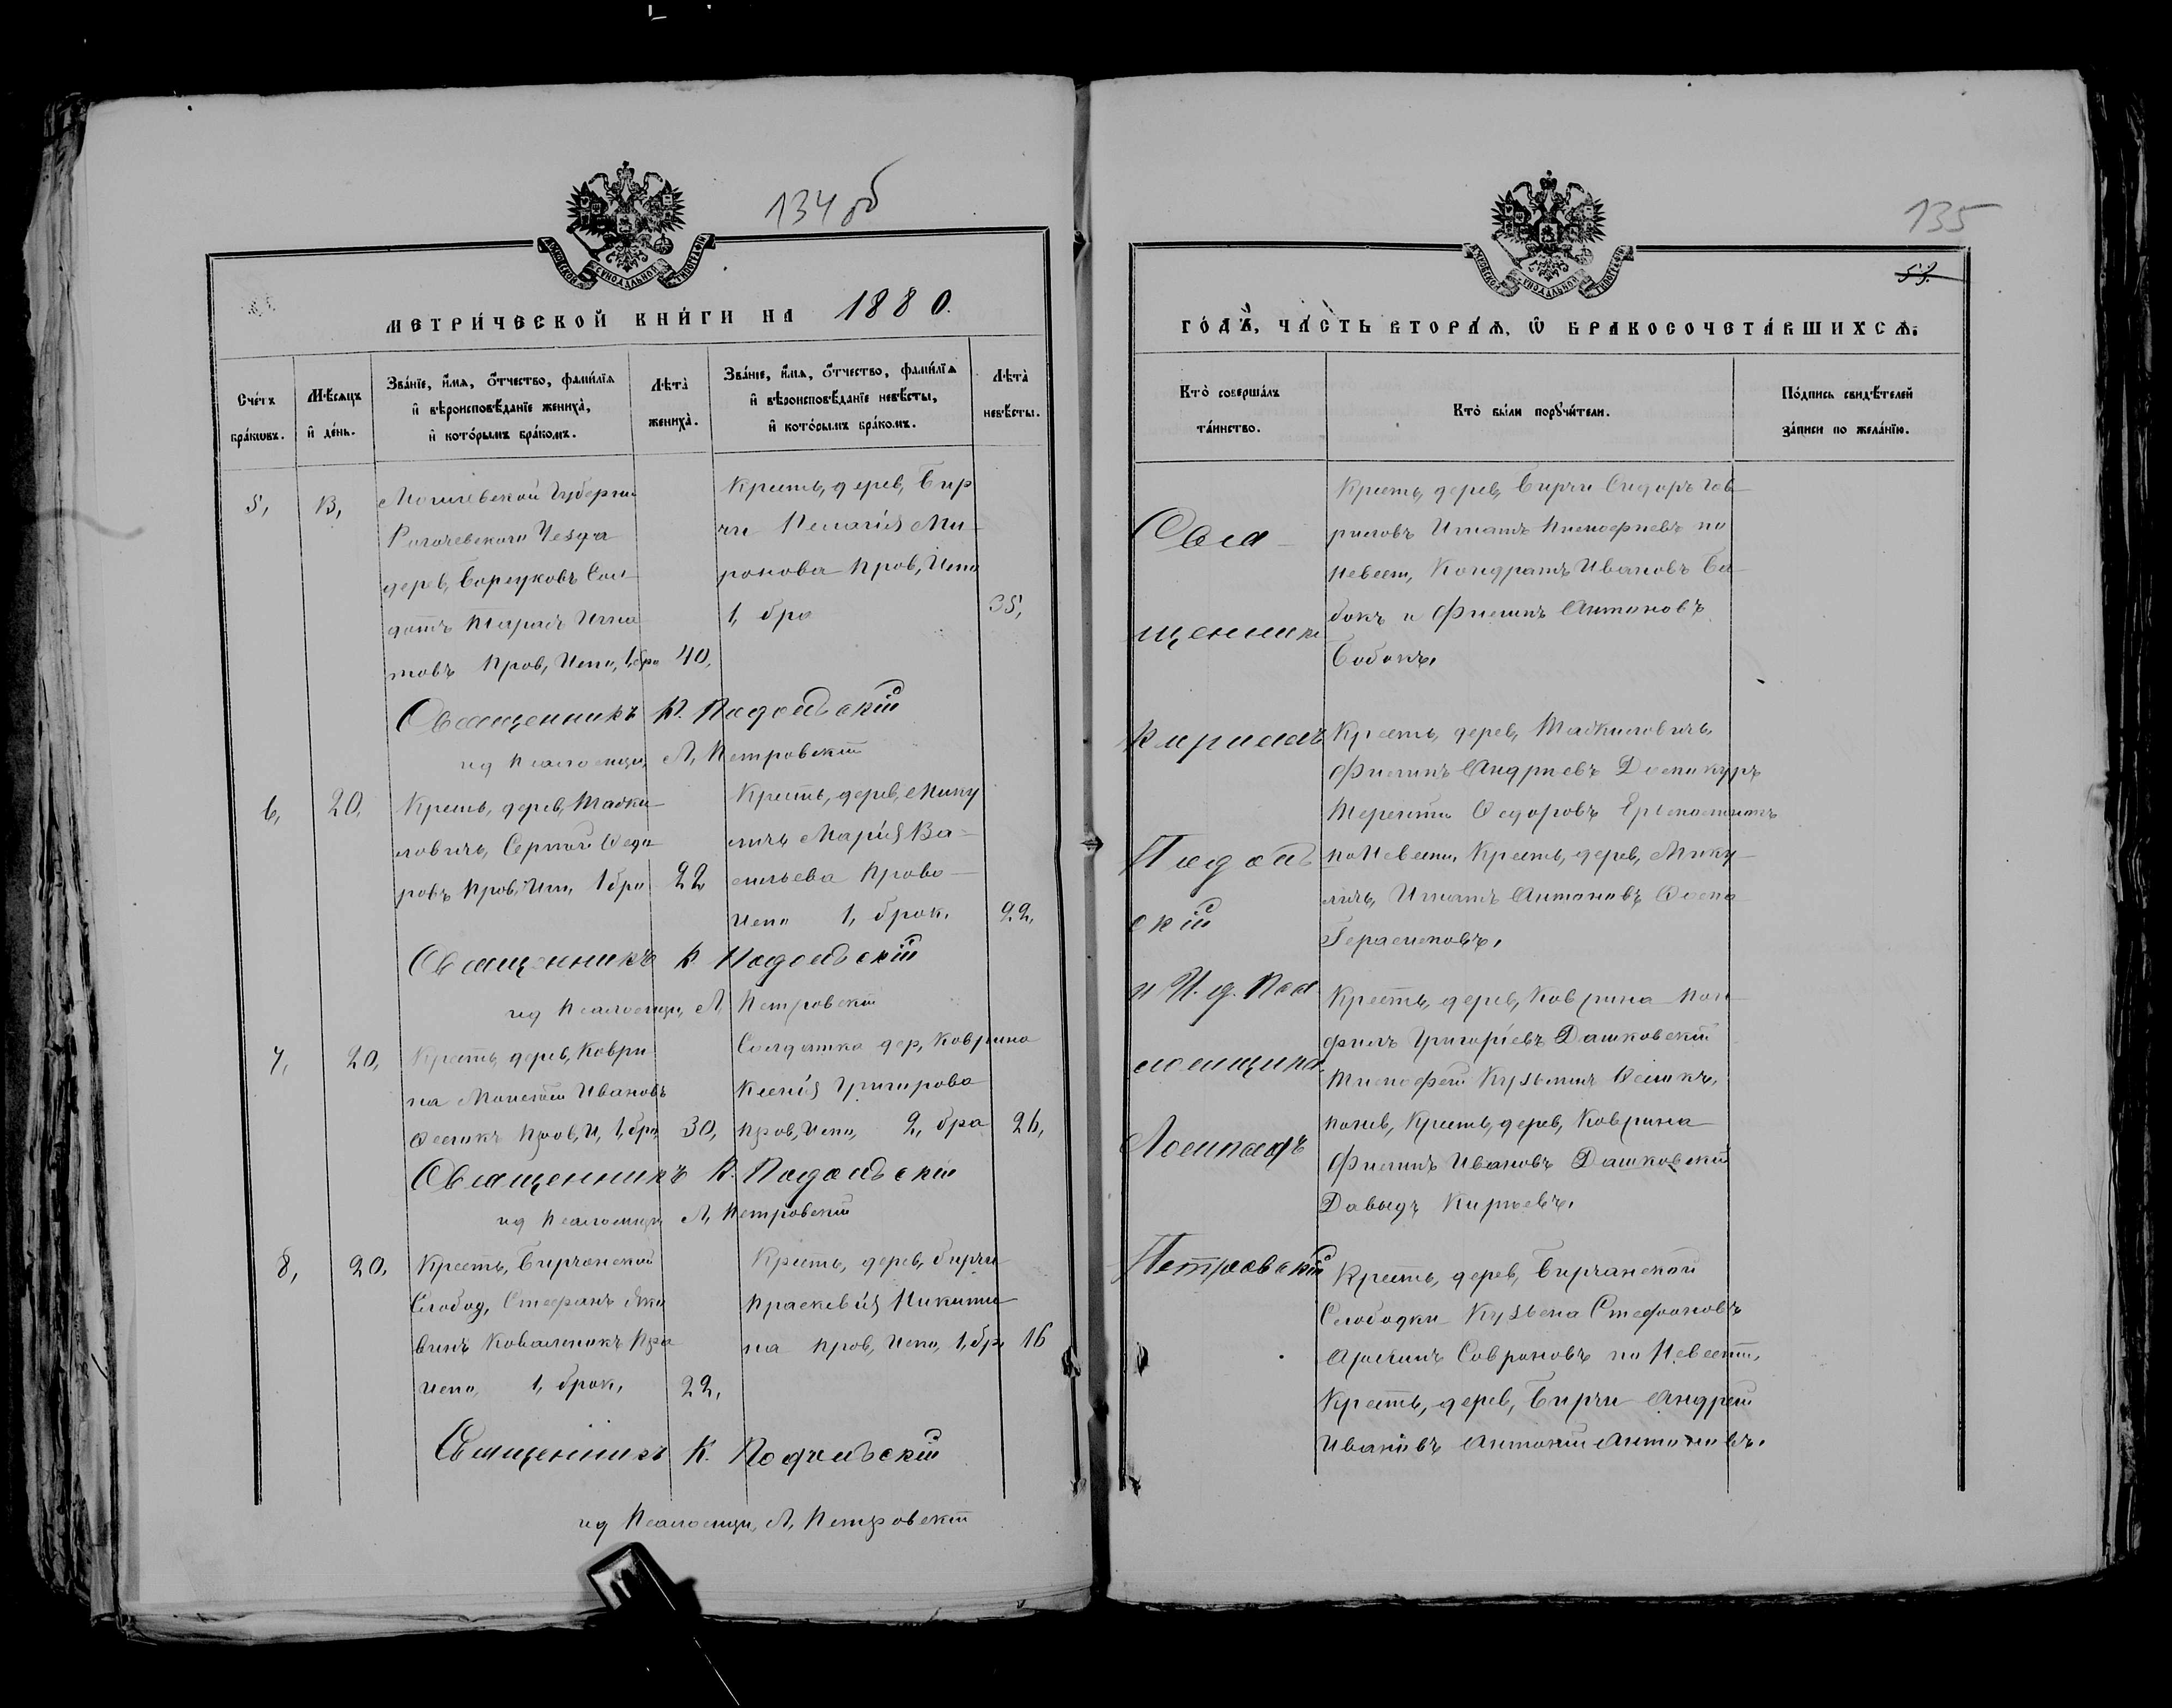 134 об
МЕТРИ́ЧЕСКОЙ КНИ́ГИ НА 1880.
Сче́тъ бра́кѡвъ.
Мѣ́сѧцъ и҆ де́нь.
Зва́нїе, и҆́мѧ, ѻ҆́тчество, фами́лїѧ и҆ вѣроисповѣ́данїе жениха̀, и҆ кото́рымъ бра́комъ.
Лѣ́та жениха̀.
Зва́нїе, и҆́мѧ, ѻ҆́тчество, фами́лїѧ и҆ вѣроисповѣ́данїе невѣ́сты, и҆ кото́рымъ бра́комъ.
Лѣ́та невѣ́сты.
5,
13,
Могилевской Губерніи
Рогачевскаго Уезда
дерев, Борщковъ Сол
датъ Тарасъ Игна
товъ Прав, Испо, 1, бра
40,
Крестъ, дерев, Бир
чи Пелагія Ми-
ронова Прав, Испо
1, бра
35,
Священникъ К. Подольскій
ид Псаломщи, Л, Петровскій
6,
20,
Крестъ, дерев, Мадки-
ловичъ, Сергѣй Ѳедо
ровъ Прав, Исп, 1 бра
22
Крестъ, дерев, Мику
личъ Марія Ва-
сильева Право-
Испо 1, брак,
22,
Священникъ К Подольскій
ид Псаломщи, Л, Петровскій
7,
20,
Крестъ, дерев, Коври
на Ивановъ
Прав, И, 1, бра,
30,
Солдатка дер, Коврина
Ксенія Григорова
Прав, Испо, 2, бра
26,
Священникъ К. Подольскій
ид Псаломщи Л, Петровскій
8,
20,
Крестъ, Бирчанской
Слобод, Стефанъ Яко
винъ Ковальчикъ Пра
Испо, 1, брак,
22,
Крестъ, дерев, бирчи
Праскевія Никити
на Прав, Испо, 1, бра
16
Священникъ К. Подольскій
ид Псаломщи, Л, Петровскій
135
53.
ГО́ДЪ, ЧА́СТЬ ВТОРА́Ѧ, Ѽ БРАКОСОЧЕТА́ВШИХСѦ:
Кто̀ соверша́лъ та́инство.
Кто̀ бы́ли порꙋчи́тели.
По́дпись свидѣ́телей за́писи по жела́нїю.
Свя-
щенникъ
Кириллъ
Подоль
скій
и И. д. Пса
ломщика
Леонидъ
Петровскій
Крестъ, дерев, Бирчи Сидоръ Гав-
риловъ Игнатъ Тимофіевъ по
Невест, Кондратъ Ивановъ Ба-
бокъ и Филипъ Антоновъ
Бобокъ,
Крестъ, дерев, Мадкиловичъ,
Филипъ Андріевъ
Терентій Ѳедоровъ
по Невесты, Крестъ, дерев, Мику-
личъ, Игнатъ Антоновъ
Герасимовъ,
Крестъ, дерев, Коврина Пан-
филъ Григоріевъ Дашковскій
Тимофей Кузьминъ
по нев, Крестъ, дерев, Коврина
Филипъ Ивановъ Дашковскій
Давыдъ Кирѣевъ,
Крестъ, дерев, Бирчанской
Слободки Кузьма Стефановъ
Савроновъ по Невест,
Крестъ, дерев, Бирчи Андрей
Ивановъ Антоній Антоновъ,